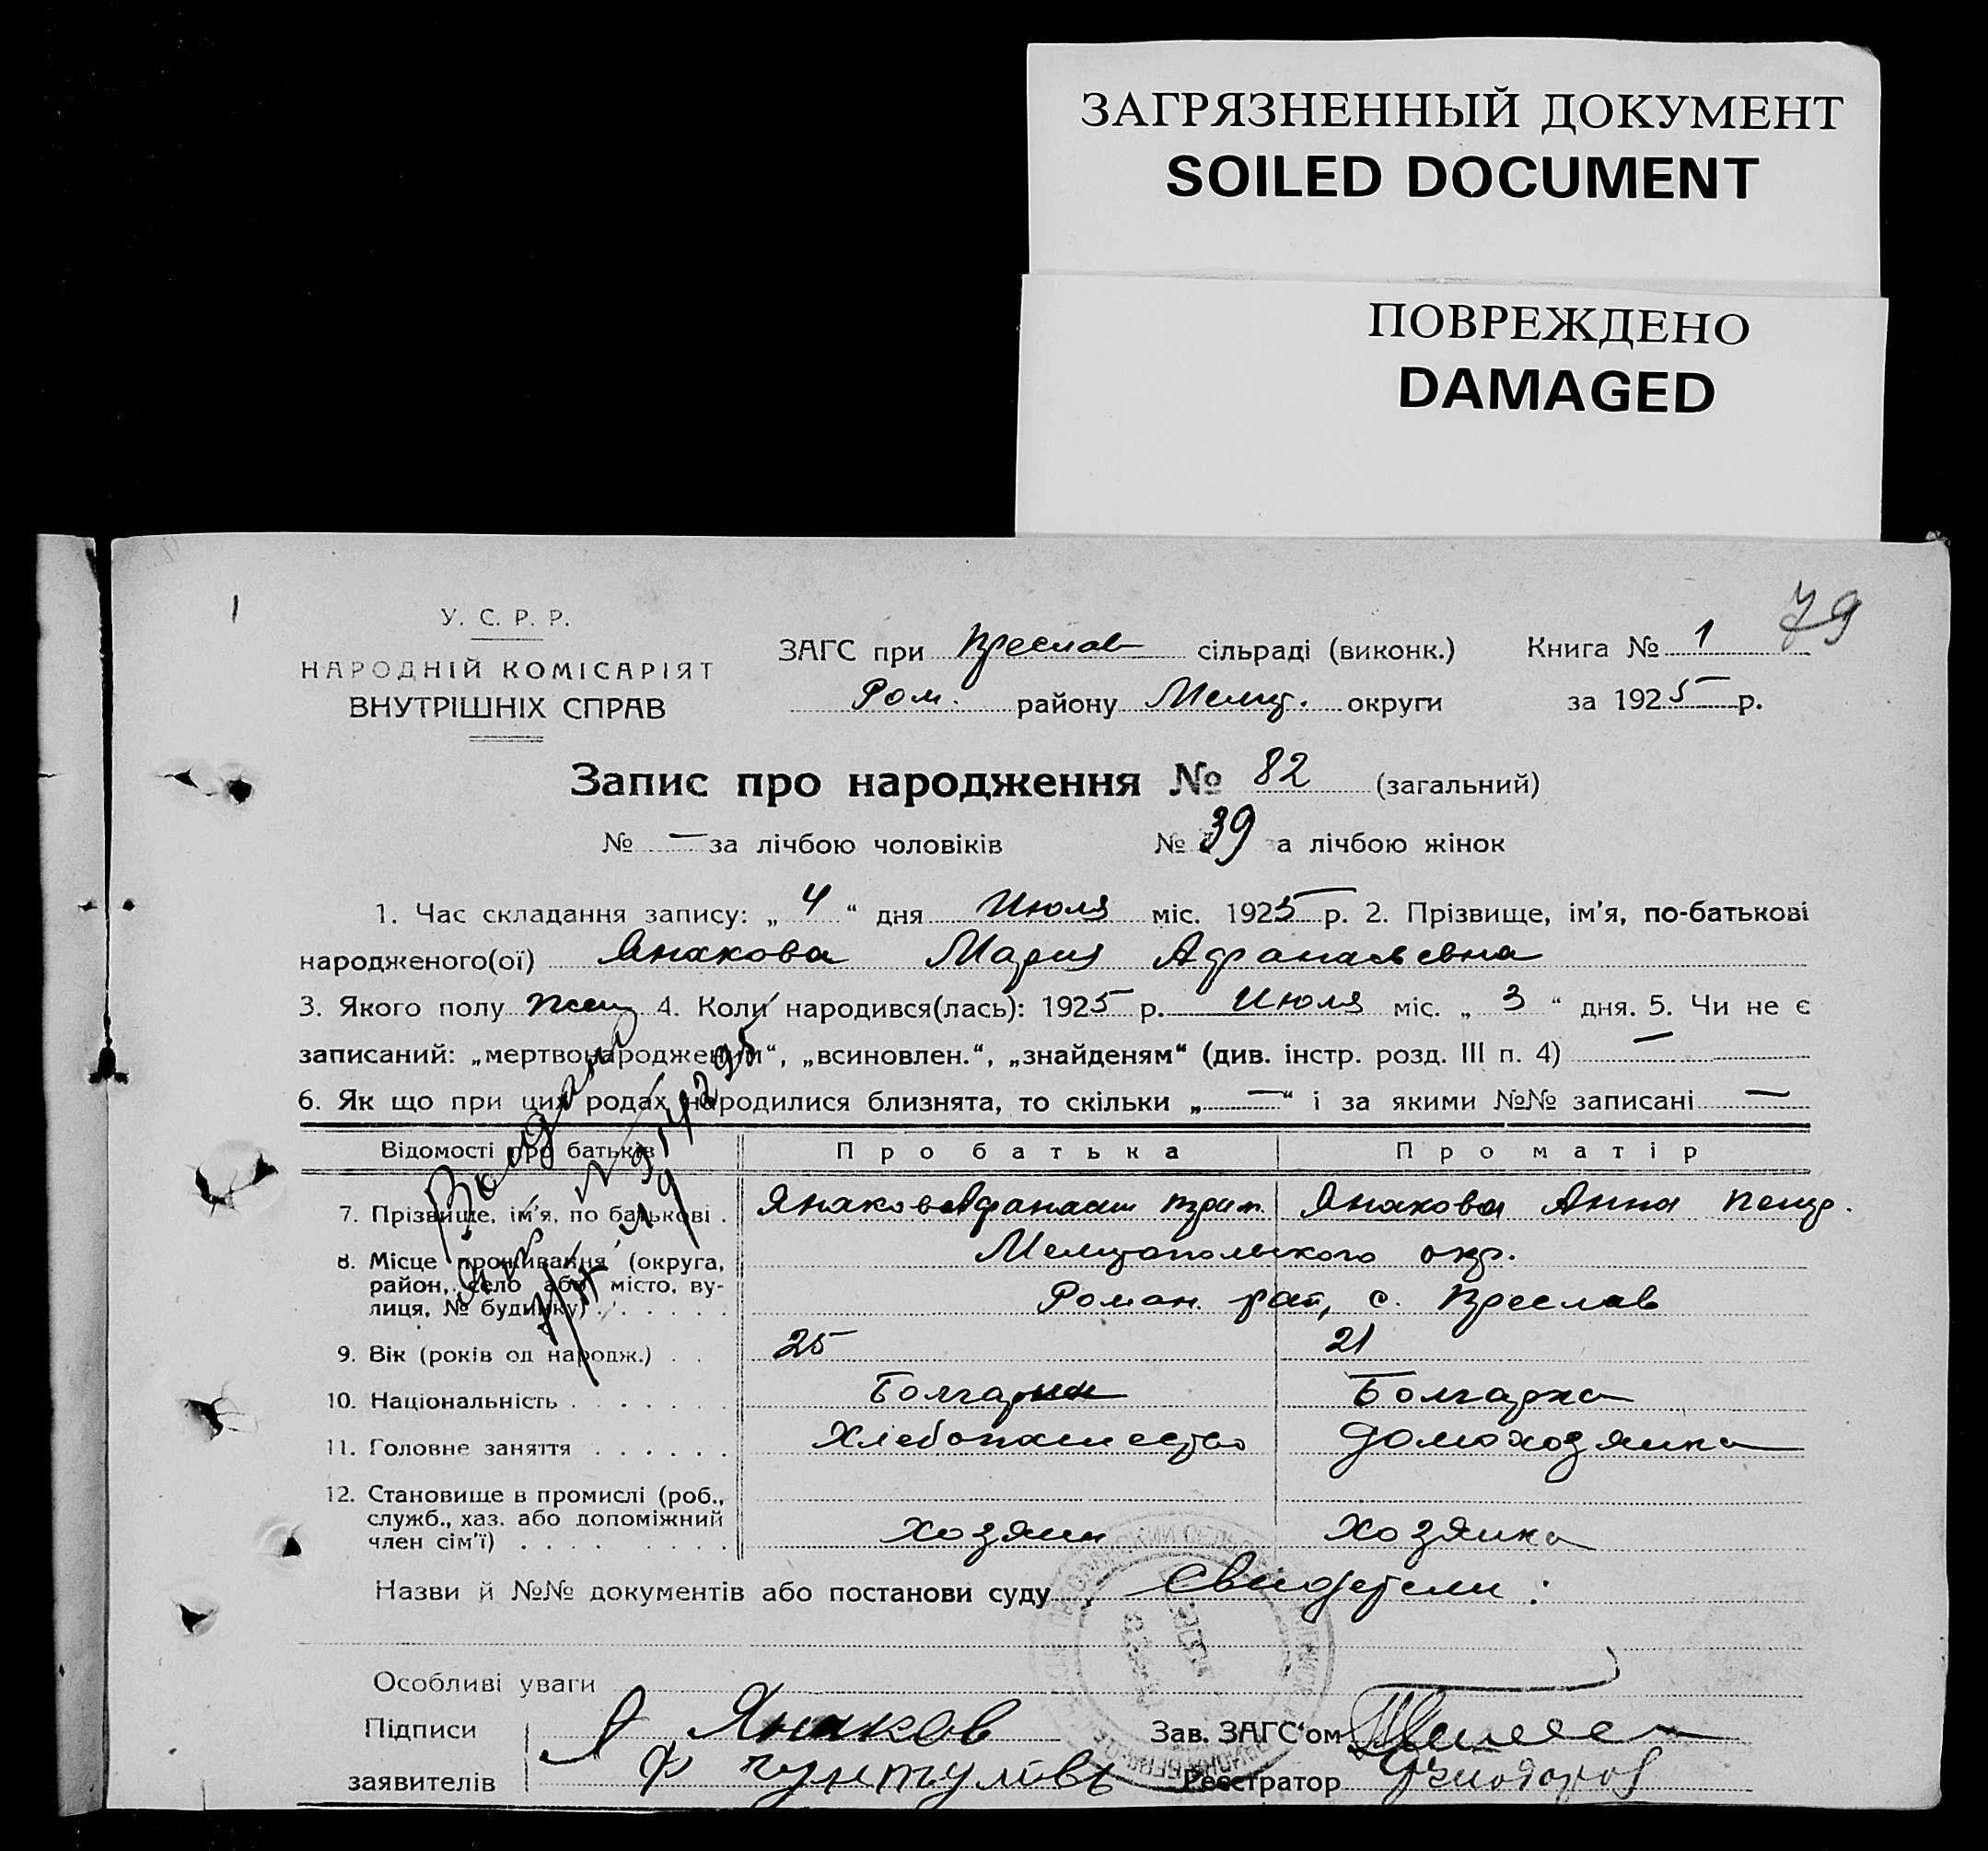 ЗАГРЯЗНЕННЫЙ ДОКУМЕНТ
SOILED DOCUMENT
ПОВРЕЖДЕНО
DAMAGED
1
79
У. С. Р. Р.
НАРОДНІЙ КОМІСАРІЯТ
ВНУТРІШНІХ СПРАВ
ЗАГС при Преслав сільраді (виконк.) Книга № 1
Ром. району Мелит. округи за 1925 р.
Запис про народження № 82 (загальний)
№ — за лічбою чоловіків № 39 за лічбою жінок
1. Час складання запису: „ 4 “ дня Июля міс. 1925 р. 2. Прізвище, ім'я, по-батькові
народженого(ої) Янакова Мария Афанасьевна
3. Якого полу жен 4. Коли народився(лась): 1925 р. Июля міс. „ 3 “ дня. 5. Чи не є
записаний: „мертвонароджений“, „всиновлен.“, „знайденям“ (див. інстр. розд. III п. 4) —
6. Як що при цих родах народилися близнята, то скільки „ — “ і за якими №№ записані —
Відомості про батьків Про батька Про матір
7. Прізвище, ім'я, по батькові . Янаков Афанасий Янакова Анна Петр.
8. Місце проживання (округа, Мелитопольского окр.
район, село або місто, ву-
лиця, № будинку) . . . . . Роман. рай, с. Преслав
9. Вік (років од народж.) . . 25 21
10. Національність . . . . . . . Болгарин Болгарка
11. Головне заняття . . . . . . Хлебопашество Домохозяйка
12. Становище в промислі (роб.,
служб., хаз. або допоміжний
член сім'ї) . . . . . . . . . Хозяин Хозяйка
Назви й №№ документів або постанови суду Свидетели:
Особливі уваги
Підписи А Янаков Зав. ЗАГС'ом
заявителів Ф Чунтуловъ Реєстратор